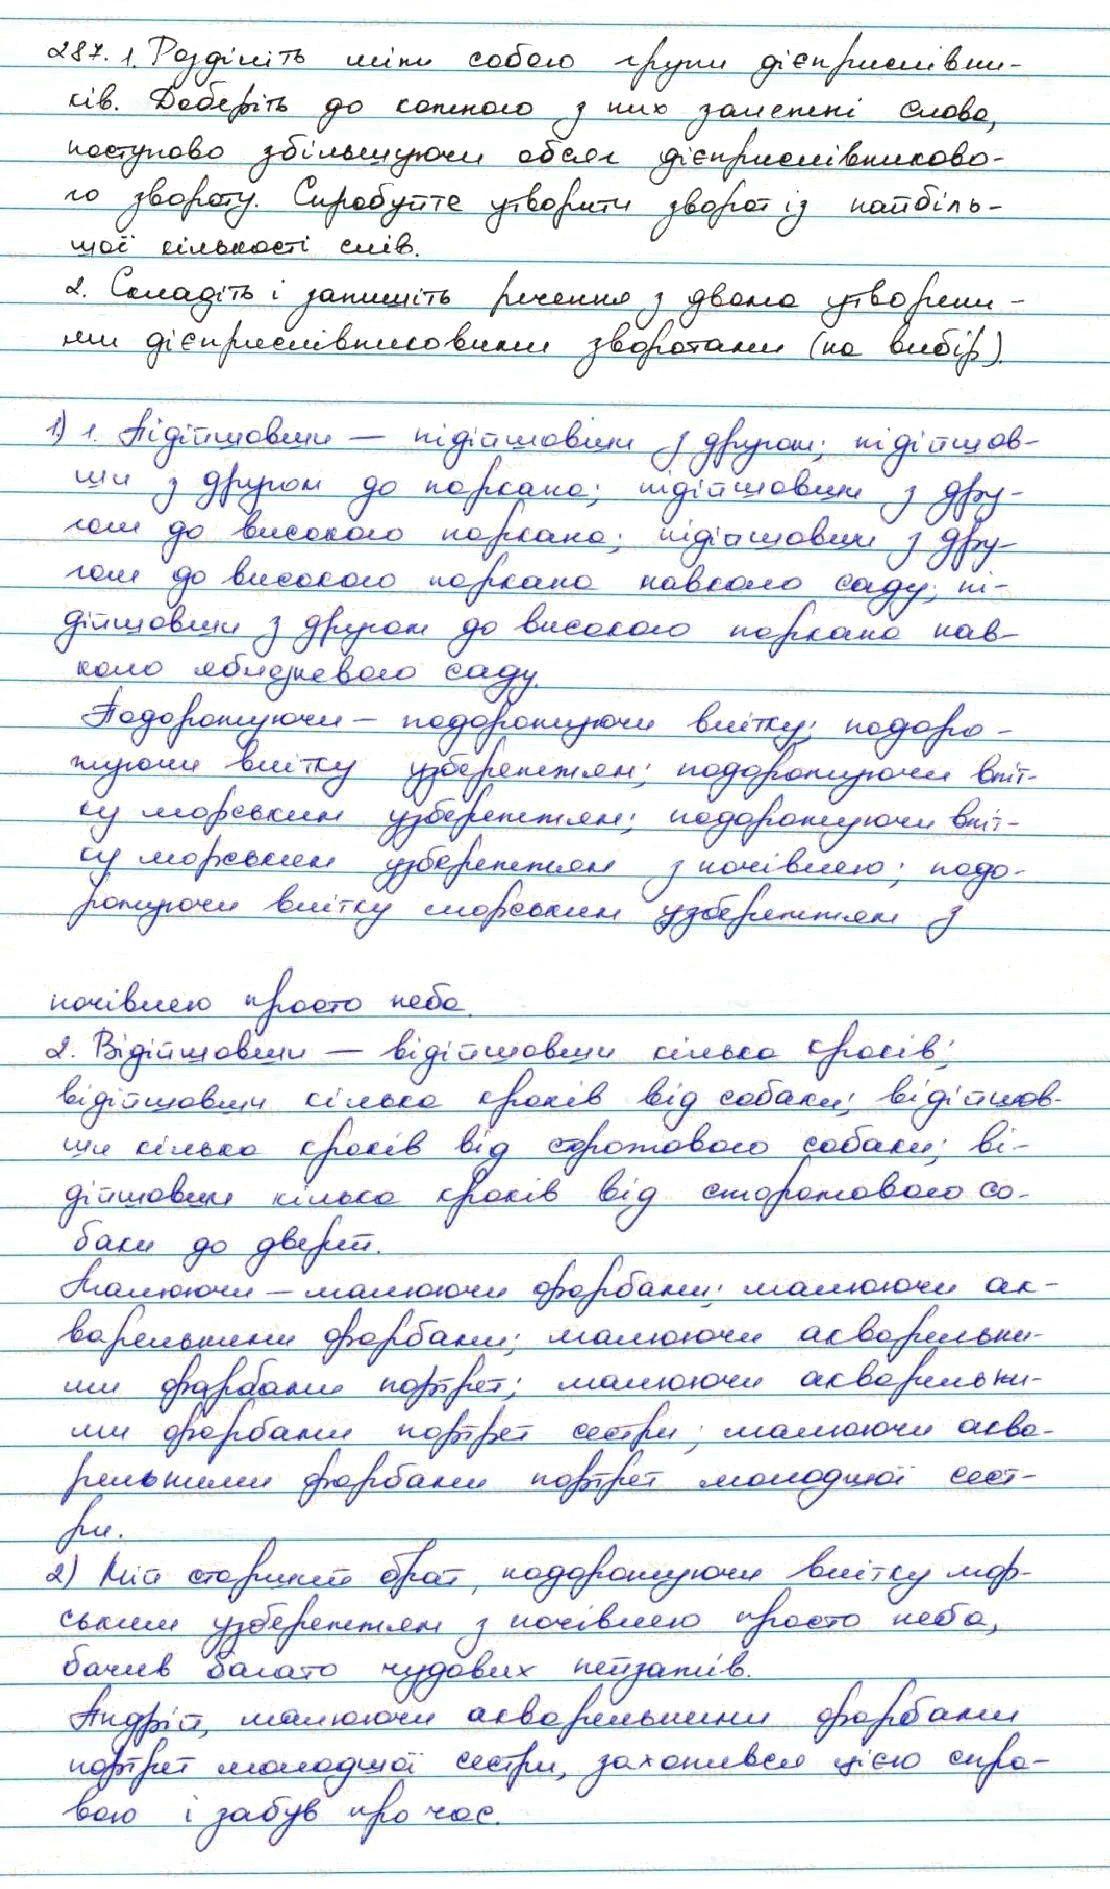 287. 1. Розділіть між собою групи дієприслівни-
ків. Доберіть до кожного з них залежні слова,
поступово збільшуючи обсяг дієприслівниково-
го звороту. Спробуйте утворити зворот із найбіль-
шої кількості слів.
2. Складіть і запишіть речення з двома утворени-
ми дієприслівниковими зворотами (на вибір).
1) 1. Підійшовши — підійшовши з другом; підійшов-
ши з другом до паркана; підійшовши з дру-
гом до високого паркана; підійшовши з дру-
гом до високого паркана навколо саду; пі-
дійшовши з другом до високого паркана нав-
коло яблуневого саду.
Подорожуючи — подорожуючи влітку; подоро-
жуючи влітку узбережжям; подорожуючи вліт-
ку морським узбережжям; подорожуючи вліт-
ку морським узбережжям з ночівлею; подо-
рожуючи влітку морським узбережжям з
ночівлею просто неба.
2. Відійшовши — відійшовши кілька кроків;
відійшовши кілька кроків від собаки; відійшов-
ши кілька кроків від сторожового собаки; ві-
дійшовши кілька кроків від сторожового со-
баки до дверей.
Малюючи — малюючи фарбами; малюючи ак-
варельними фарбами; малюючи акварельни-
ми фарбами портрет; малюючи акварельни-
ми фарбами портрет сестри; малюючи аква-
рельними фарбами портрет молодшої сест-
ри.
2) Мій старший брат, подорожуючи влітку мор-
ським узбережжям з ночівлею просто неба,
бачив багато чудових пейзажів.
Андрій, малюючи акварельними фарбами
портрет молодшої сестри, захопився цією спра-
вою і забув про час.